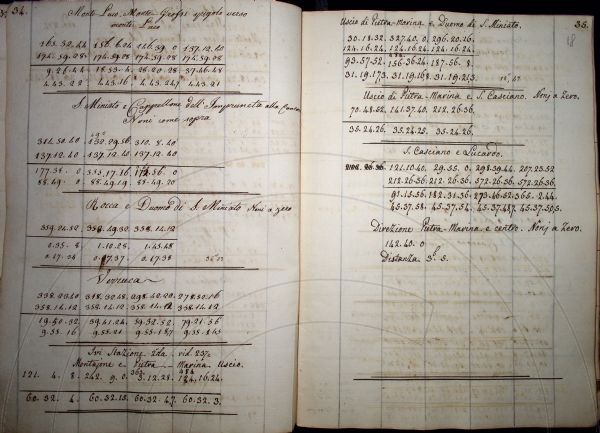 34.
Monte Luco, Monte Grossi spigolo verso
monte Luco
163.32.44 156.6.04 146.39.0 137.12.40
174.59.08 174.59.08 174.59.08 174.59.08
9.26.24 18.53.4 28.20.28 37.46.48
4.43.22 4.43.16 4.43.24 4.43.21
S. Miniato e Cappellone dell'Impruneta alla
Noni come sopra
314.50.40 132.29.56 310.8.40
137.12.40 137.12.40 137.12.40
177.38.0 172.56.0
88.49.0 88.49.19 88.49.20
Rocca e Duomo di S. Miniato Noni a zero
359.24.32 358.49.32 358.14.12
0.35.8 1.10.28 1.45.48
0.17.34 0.17.37 0.17.38
Verruca
338.23.40 318.32.48 298.42.20 278.50.16
358.14.12 358.14.12 358.14.12 358.14.12
19.50.32 39.41.24 59.32.52 79.21.56
9.55.16 9.55.21 9.55.187
Ivi Stazione 2da. vid. 237.
Montajone e Pietra-Marina Uscio.
121.4.8. 242.9.0. 3.12.28. 124.16.24.
60.32.4. 60.32.15. 60.32.47. 60.32.3.
35.
Uscio di Pietra-Marina e Duomo di S. Miniato.
30.18.32. 327.40.0. 296.20.26.
124.16.24. 124.16.24. 124.16.24.
93.57.52. 156.36.24. 187.56.8.
31.19.173. 31.19.168. 31.19.213.
Uscio di Pietra-Marina e S. Casciano. Nonj a Zero.
70.48.52. 141.37.40. 212.26.36.
35.24.26. 35.24.25. 35.24.26.
S. Casciano e Lucardo.
121.10.40. 29.35.0. 298.39.44. 207.23.52
212.26.36. 212.26.36. 572.26.36. 572.26.36.
91.15.56. 182.51.36. 273.46.52. 365.2.44.
45.37.58. 45.37.54. 45.37.487. 45.37.505.
Direzione Pietra-Marina e centro. Nonj a Zero.
142.40.0
Distanza 3. 5.